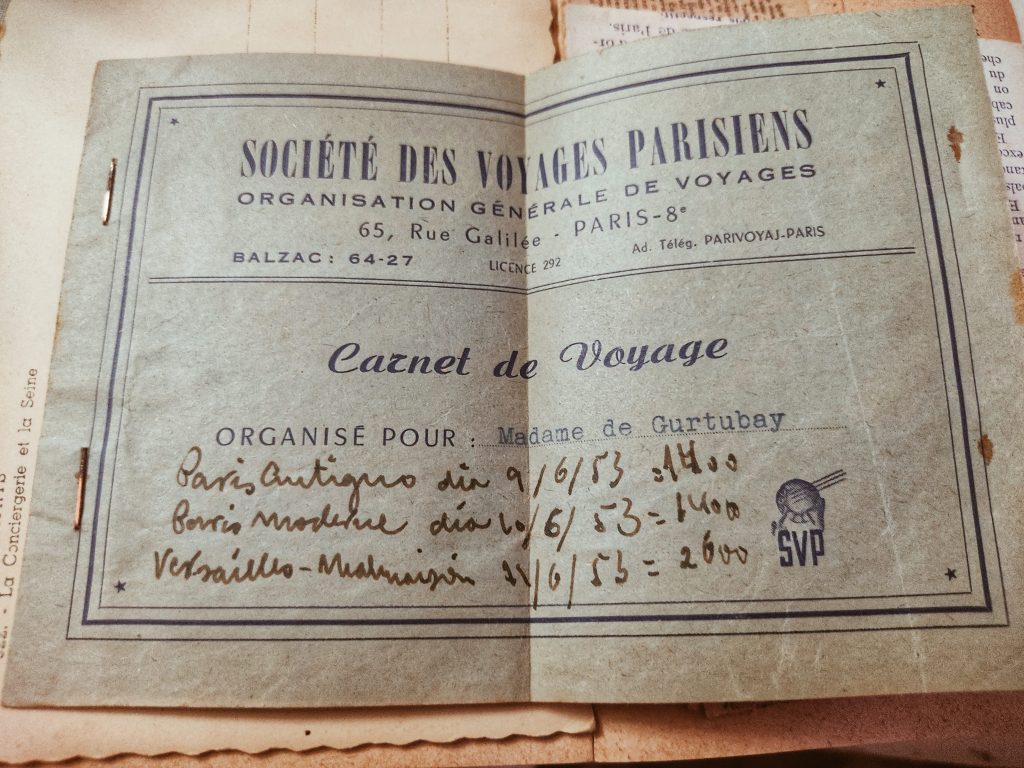 SOCIÉTÉ DES VOYAGES PARISIENS
ORGANISATION GÉNÉRALE DE VOYAGES
65, Rue Galilée - PARIS-8e
BALZAC : 64-27 LICENCE 292 Ad. Télég. PARIVOYAJ-PARIS
Carnet de Voyage
ORGANISÉ POUR : Madame de Gurtubay
Paris Antiguo dia 9/6/53 = 1400
Paris Moderne dia 10/6/53 = 1400
Versailles - Malmaison /6/53 = 2600
SVP
La Conciergerie et la Seine
de Paris.